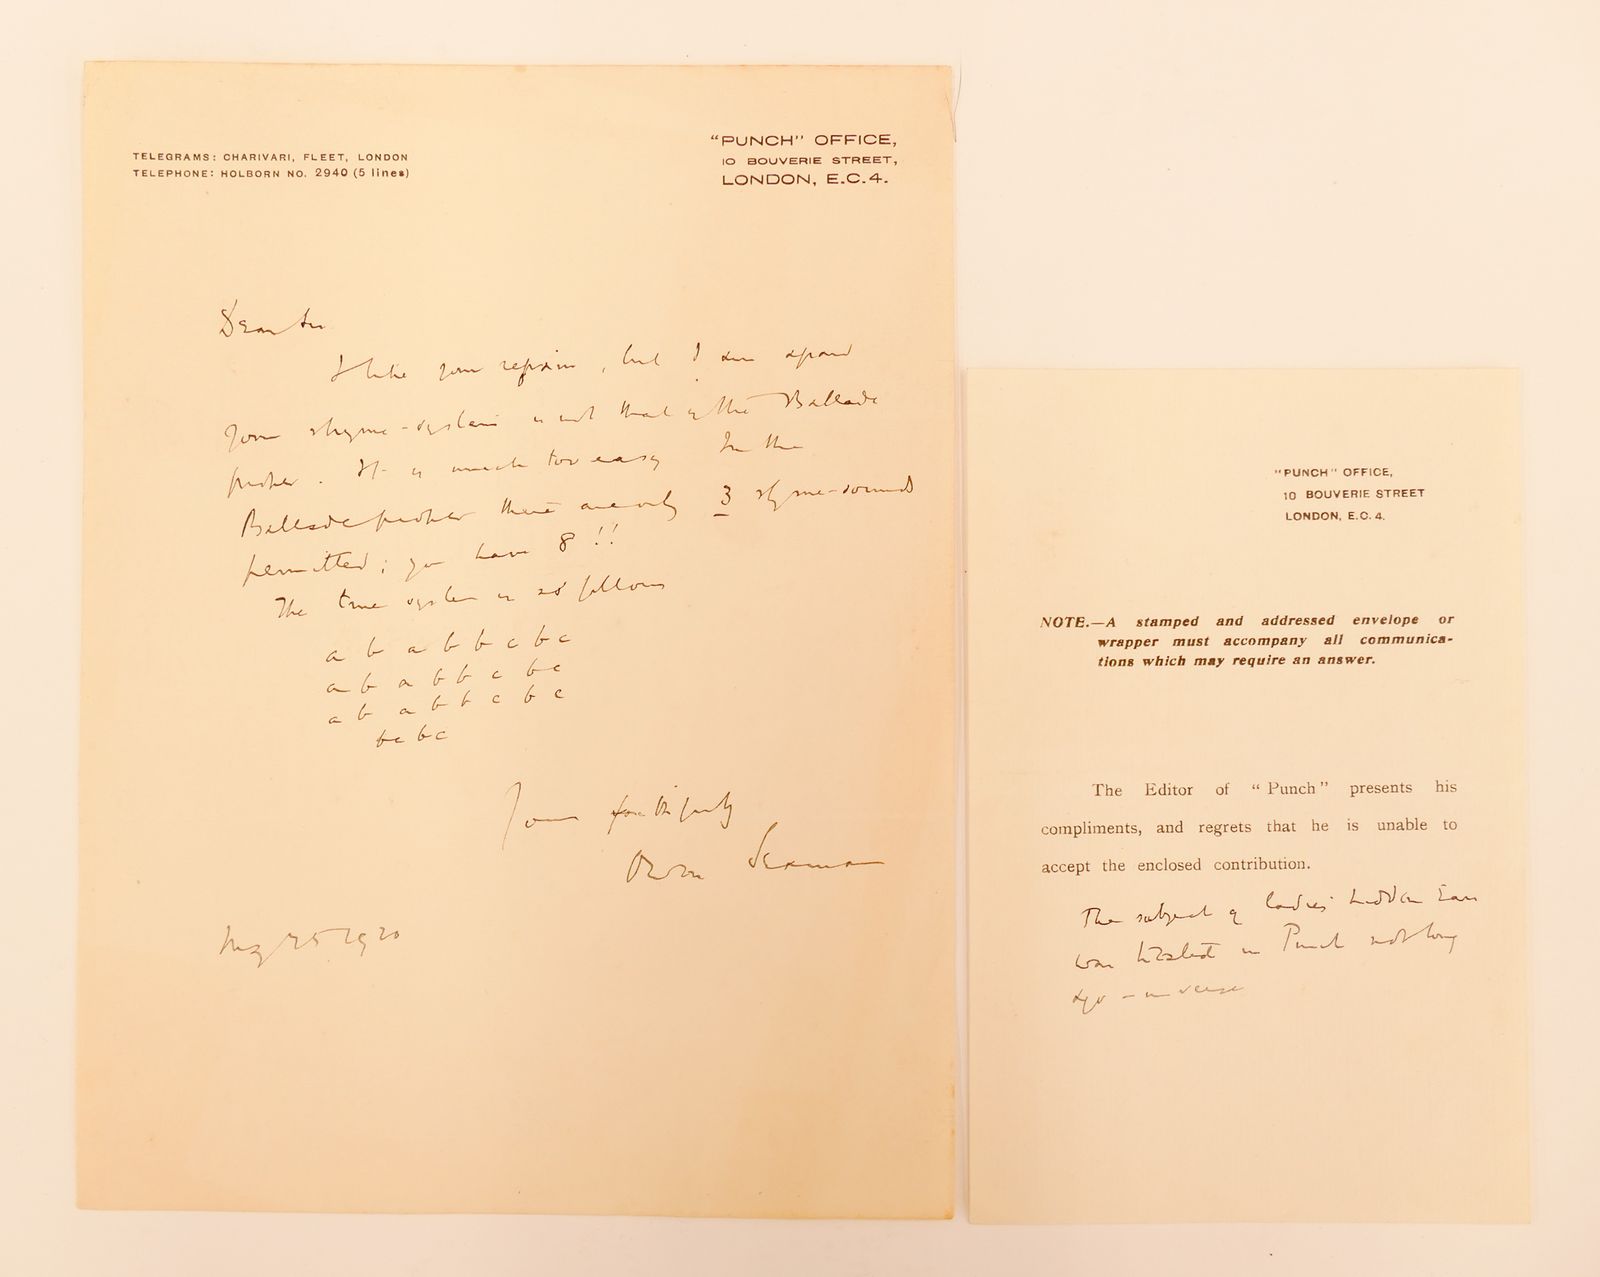 TELEGRAMS: CHARIVARI, FLEET, LONDON
TELEPHONE: HOLBORN NO. 2940 (5 lines)
"PUNCH" OFFICE,
10 BOUVERIE STREET,
LONDON, E.C.4.
Dear Sir
I like your refrain, but I am afraid
your rhyme-system is not that of the Ballade
proper. It is much too easy. In the
Ballade proper there are only 3 rhyme-sounds
permitted; you have 8!!
The true system is as follows
a b a b b c b c
a b a b b c b c
a b a b b c b c
bc bc
Yours faithfully
Owen Seaman
May 25 1920
"PUNCH" OFFICE,
10 BOUVERIE STREET
LONDON, E.C. 4.
NOTE.—A stamped and addressed envelope or
wrapper must accompany all communica-
tions which may require an answer.
The Editor of "Punch" presents his
compliments, and regrets that he is unable to
accept the enclosed contribution.
The subject of ladies' hidden Ears
was treated in Punch not long
ago - in verse